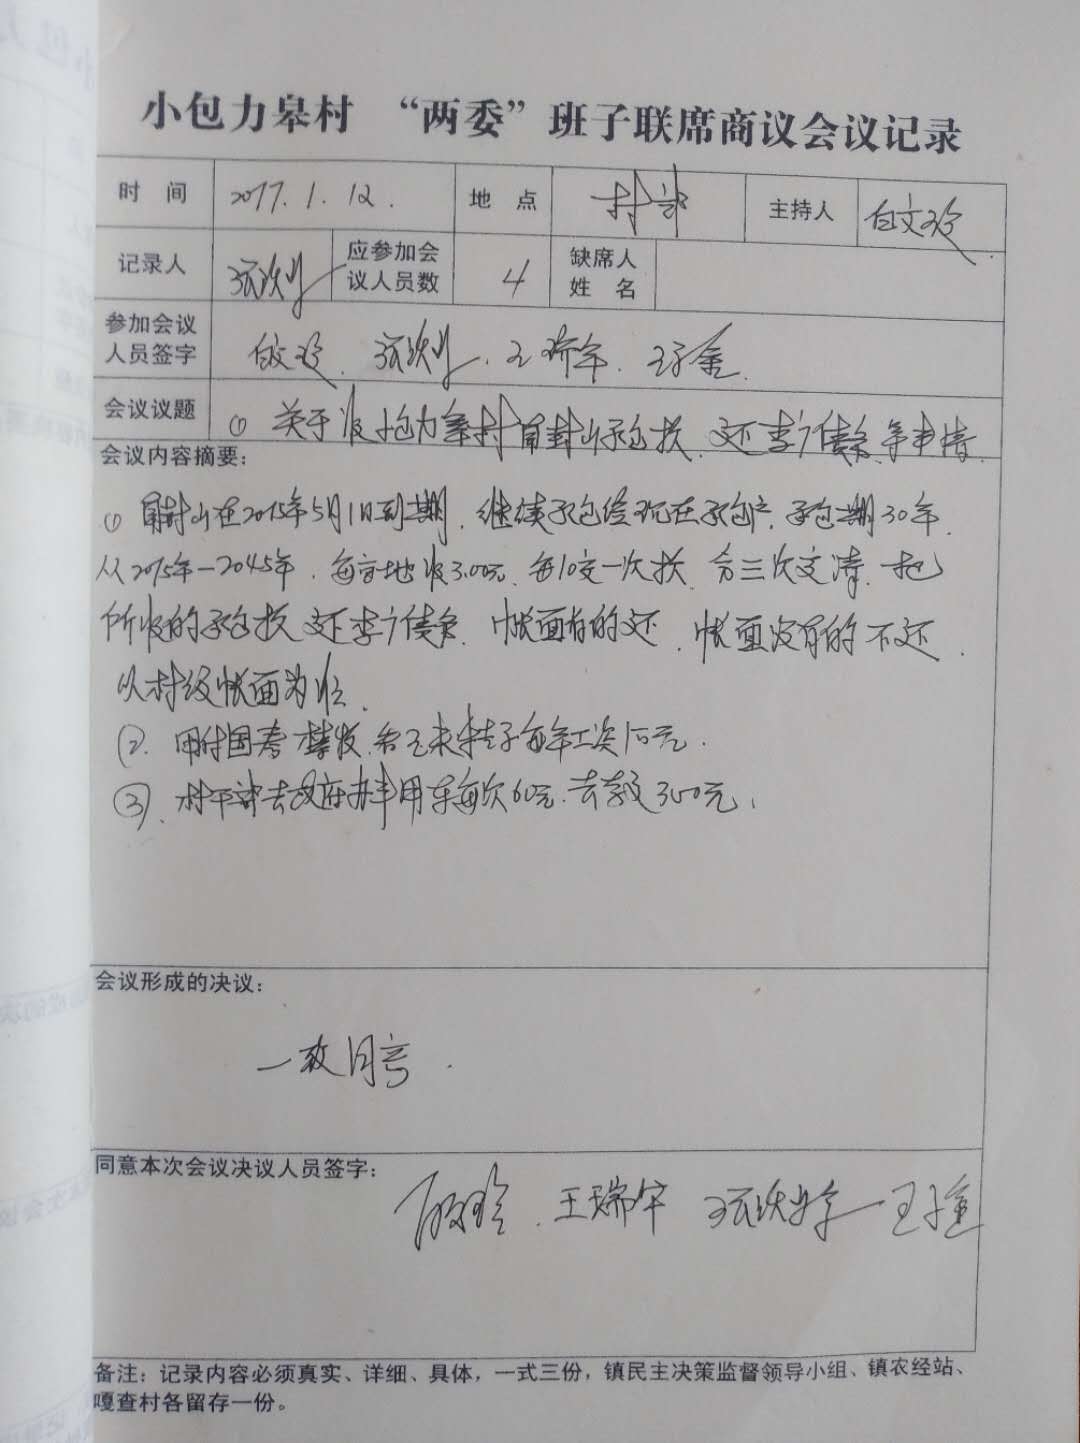 小包力皋村 “两委”班子联席商议会议记录
时 间 2017.1.12. 地 点 村部 主持人 白文玲
记录人 应参加会议人员数 4 缺席人姓名
参加会议人员签字 白文玲、 王瑞军、王子金
会议议题 ① 关于收小包力皋村 山承包 、还 等事情
会议内容摘要:
① 山在2015年5月1日到期、继续承包给现在承包户、承包期30年、
从2015年—2045年、每亩地收3.00元、每10交一次 、分三次交清、把
所收的承包 还 、帐面有的还、帐面没有的不还、
以村级帐面为准、
②、用付国春禁牧、 每年工资 元.
③、村干部去政府办事用车每次60元、去 300元、
会议形成的决议:
一致同意.
同意本次会议决议人员签字:
白文玲、王瑞军 王子金
备注:记录内容必须真实、详细、具体,一式三份,镇民主决策监督领导小组、镇农经站、
嘎查村各留存一份。